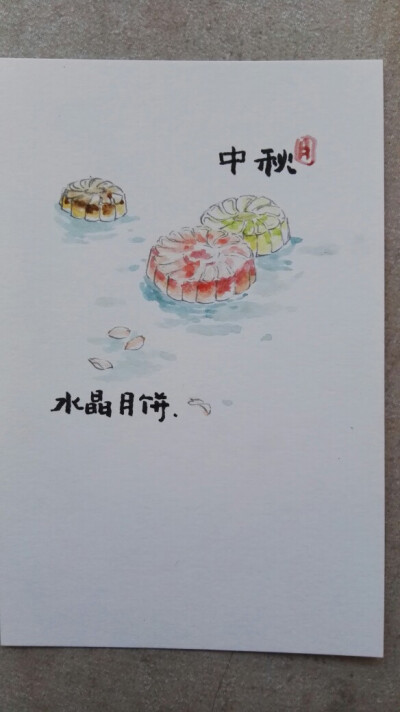 中秋
月
水晶月饼.